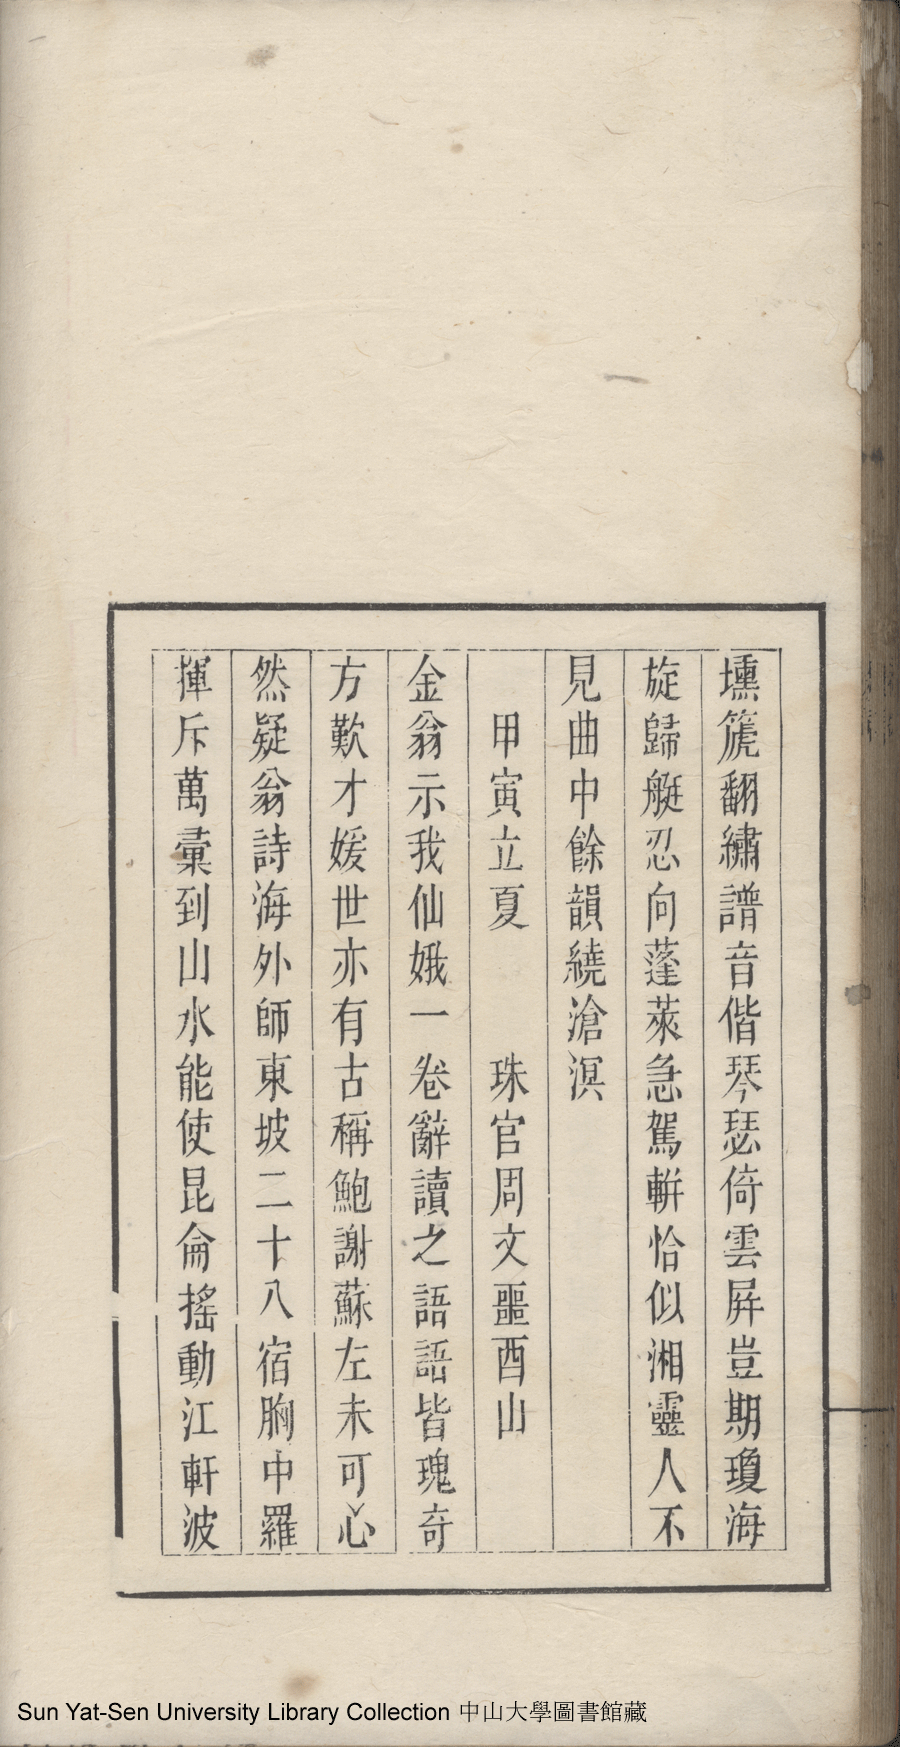 壎箎翻繡譜音偕琴瑟倚雲屛豈期瓊海
旋歸艇忍向蓬萊急駕軿恰似湘靈人不
見曲中餘韻繞滄溟
甲寅立夏　珠官周文噩酉山
金翁示我仙娥一卷辭讀之語語皆瑰奇
方歎才媛世亦有古稱鮑謝蘇左未可心
然疑翁詩海外師東坡二十八宿胸中羅
揮斥萬彙到山水能使昆侖搖動江軒波
Sun Yat-Sen University Library Collection 中山大學圖書館藏